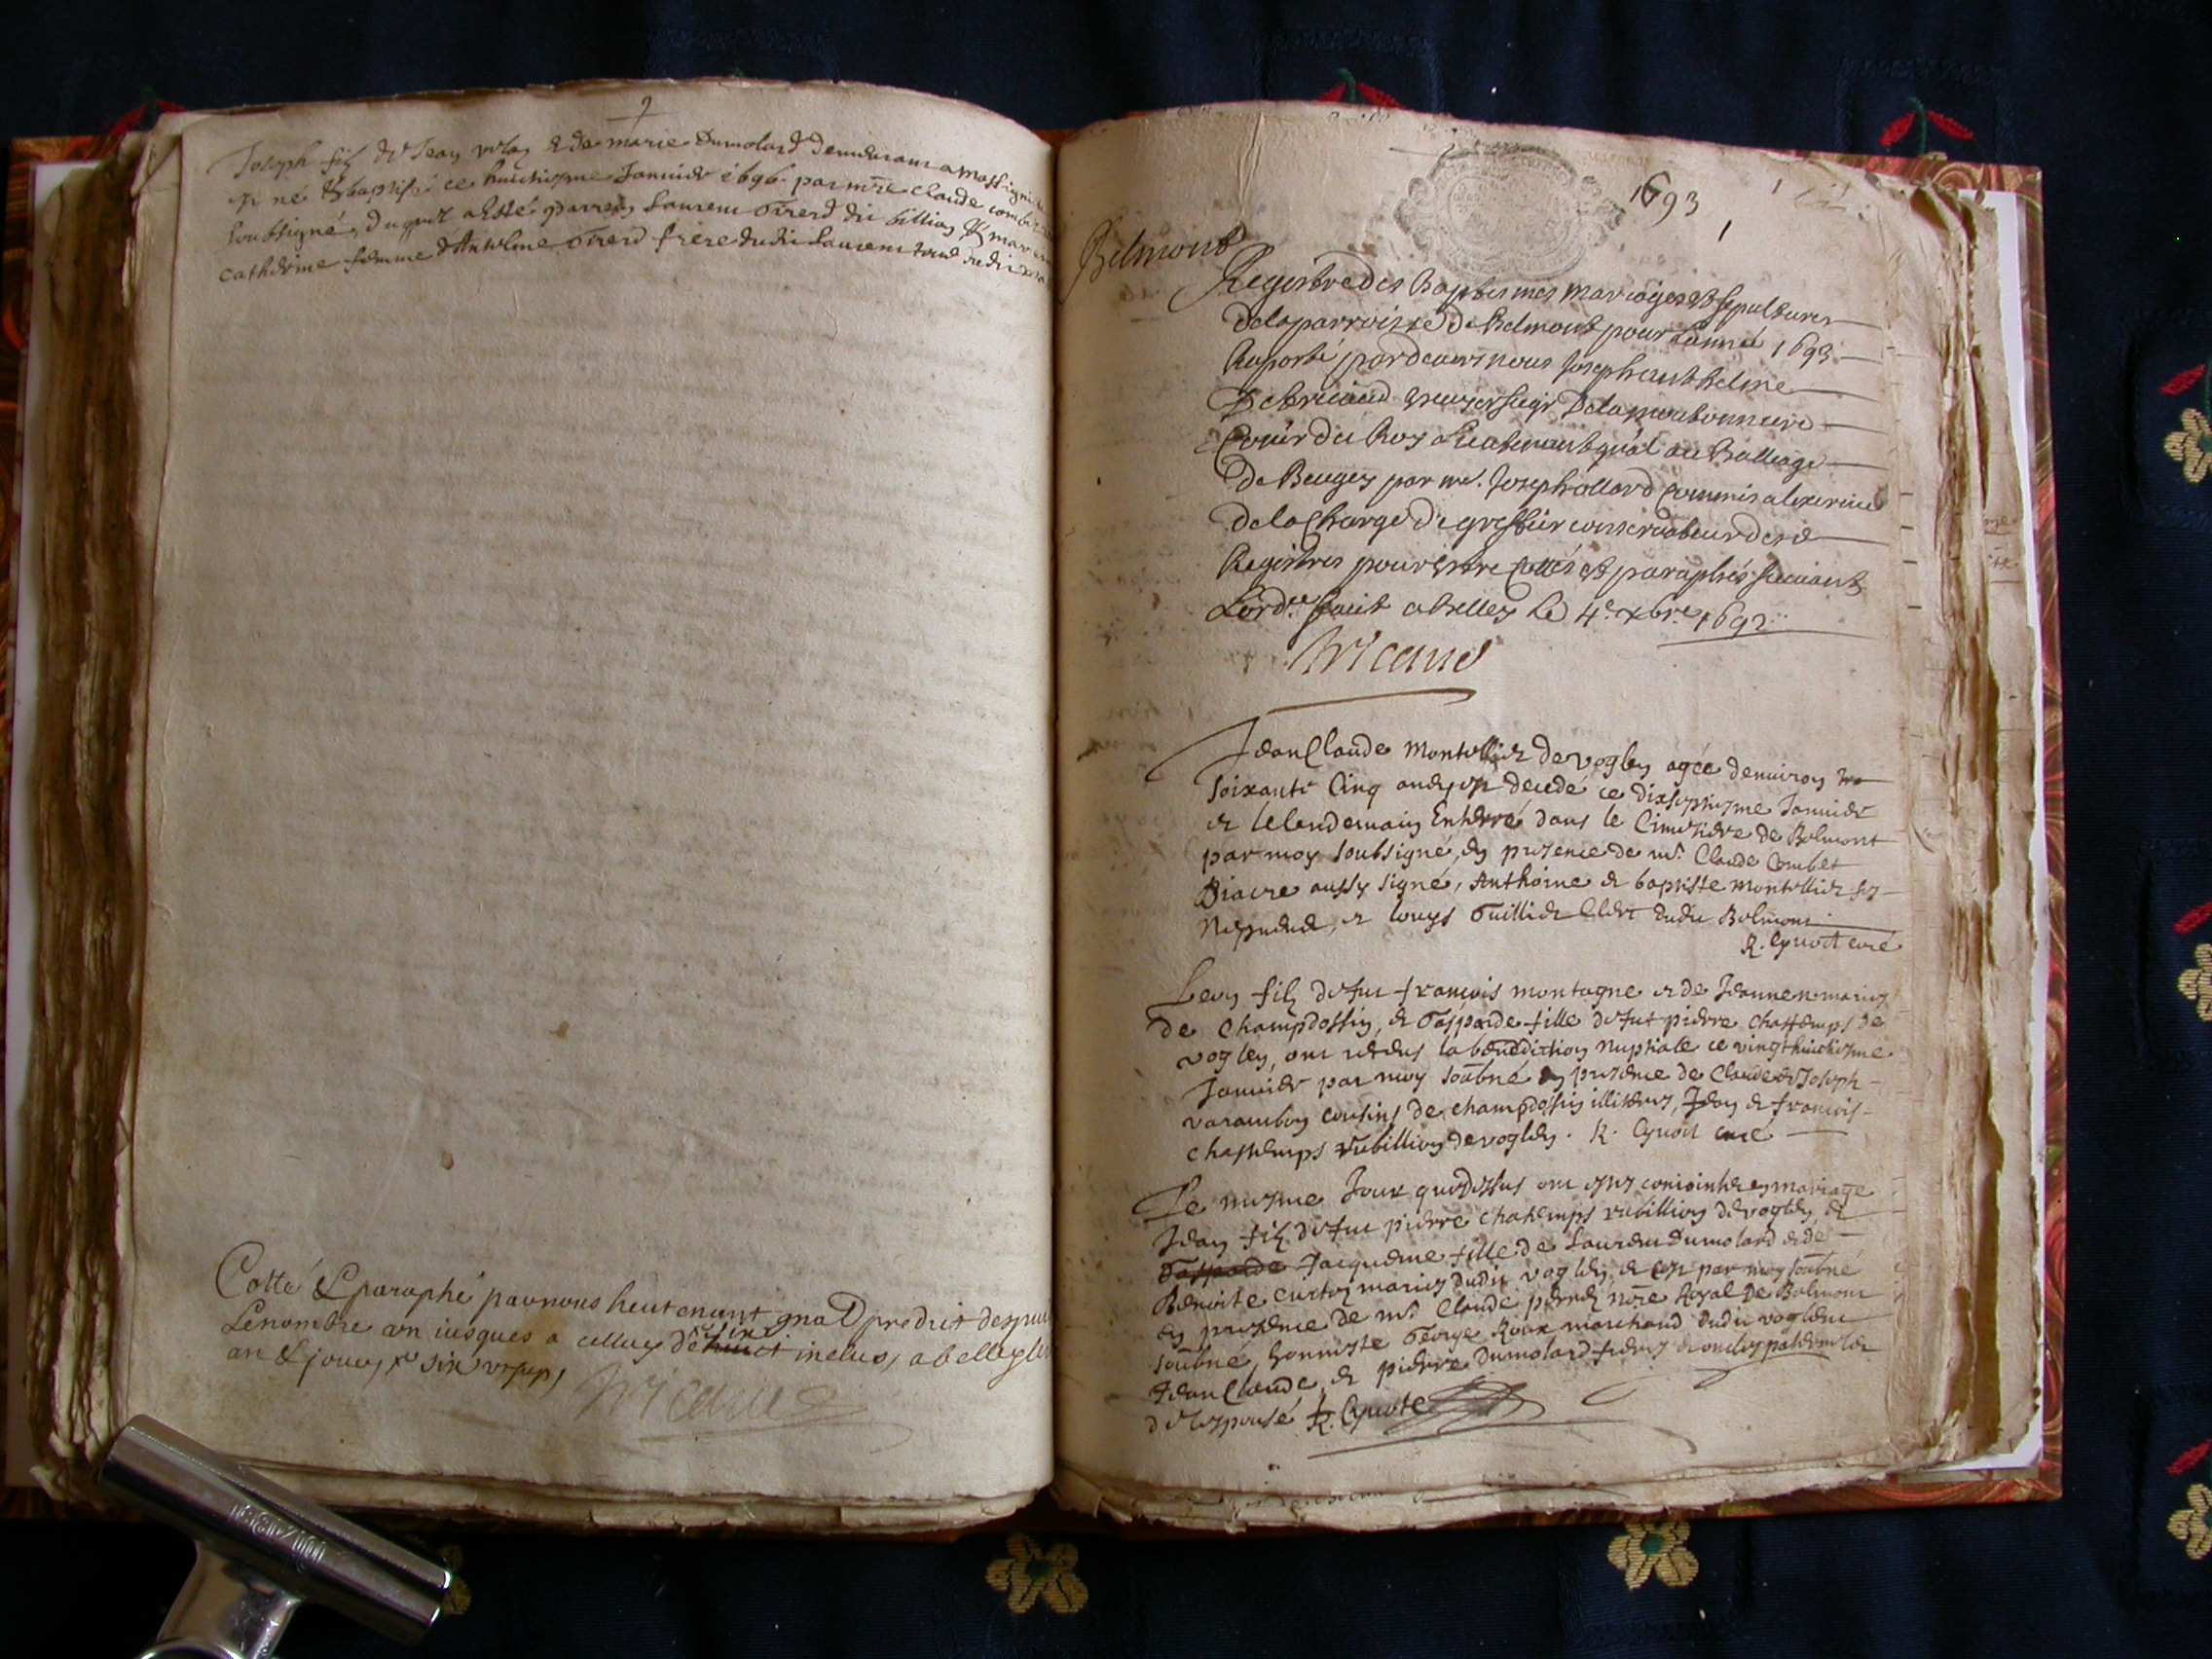 Joseph filz de Jean de marie Dumolard demeurant a Massigni
et né & baptisé ce huictiesme Januier 1696. par mre claude combet
soubsigné, duquel a esté parrein Laurent Girerd dit billion & mar
catherine femme d'Anthelme Girerd frere dudit Laurent tous dudit
Cotté & paraphé par nous lieutenant gnal predict despuis
Le nombre un iusques a celluy de huict six inclus, a belley le
an & jour,
Bricaud
1693
1
Belmont
Registre des Baptesmes mariages et sepultures
de la parroisse de Belmont pour Lanneé 1693
Raporté pardeuers nous Joseph anthelme
De bricaud escuyer siegr De la moutonniere
Coner du Roy Lieutenant gnal au Balliage
De Beugey par me. Joseph allard commis a lexercice
de la Charge de greffier conseruateur desd
Registres pour estre Cottés et paraphés suiuant
Lordce faict a belley le 4e xbre 1692
Bricaud
Jean Claude Montillier de vogley agée denuiron
soixante Cinq ans, est decedé ce dixseptiesme Januier
et le lendemain Enterré dans le Cimetiere de Belmont
par moy soubsigné, en presence de mr. Claude Combet
Diacre aussy signé, Anthoine et baptiste Montillier ses
Nepueux, et Louys Guillier Clerc dudit Belmont
R. Cyuoct curé
Leon filz de fut francois montagne et de Jeanne mariez
de champdossin, et Gasparde fille de fut pierre chastemps de
vogley, ont receus la benediction nuptiale ce vingthuictiesme
Januier par moy soubné en presence de Claude et Joseph
varambon cousins de champdossin illiterez, Jean et francois
chastemps rubillion de vogley. R. Cyuoct curé
Le mesme Jour que dessus ont estez conioinct en mariage
Jean filz de fut pierre chatemps rubillion de vogley et
Gasparde Jacqueme fille de Laurent Dumolard et de
Benoiste curtoz mariez dudit vogley et est par moy soubné
en presence de mr. Claude nore Royal de Belmont
soubné, honneste George Roux marchand dudit voglent
Jean Claude, et pierre Dumolard freres et oncles paternelz
de lespousé R. Cyuocte